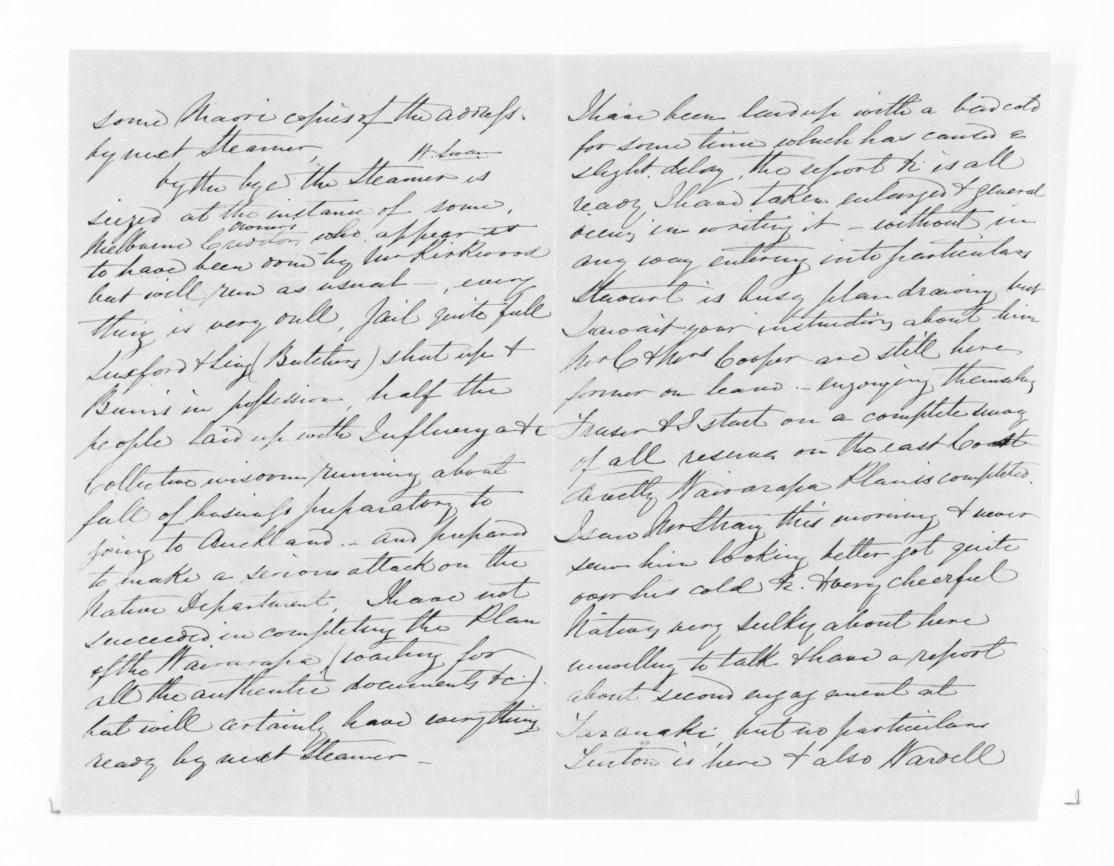 some Maori copies of the address.
by next Steamer,
W. Swan
by the bye the Steamer is
seized at the instance of some,
owners
Melbourne Creditors who appear is
to have been done by Mr Kirkwood
but will run as usual —, every
thing is very dull, Jail quite full
Luxford & Ling (Butchers) shut up &
Burns in possession, half the
people laid up with Influenza & c
Collective wisdom running about
full of business preparatory to
going to Auckland — and prepared
to make a serious attack on the
Native Department, I have not
succeeded in completing the Plan
of the Wairarapa (waiting for
all the authentic documents &c.)
but will certainly have everything
ready by next Steamer —
I have been laid up with a bad cold
for some time which has caused a
slight delay, the report &c is all
ready I have taken enlarged & general
views in writing it — without in
any way entering into particulars
Stewart is busy plan drawing but
I await your instructions about him
Mr C & Mrs Cooper are still here
former on leave — enjoying themselves
Fraser & I start on a complete
of all reserves on the east Coast
directly Wairarapa Plan is completed.
I saw Mr Strang this morning & never
seen him looking better got quite
over his cold &c. & very cheerful
Natives very sulky about here
unwilling to talk & have a report
about second engagement at
Taranaki, but no particulars
is here & also Wardell